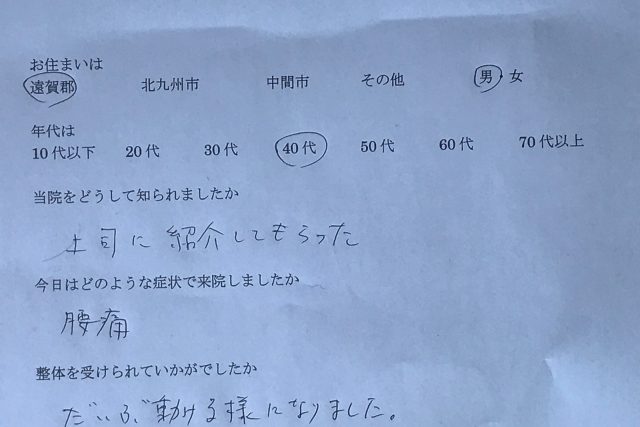 お住まいは
遠賀郡 北九州市 中間市 その他 男・女
年代は
10代以下 20代 30代 40代 50代 60代 70代以上
当院をどうして知られましたか
上司に紹介してもらった
今日はどのような症状で来院しましたか
腰痛
整体を受けられていかがでしたか
だいぶ動ける様になりました。